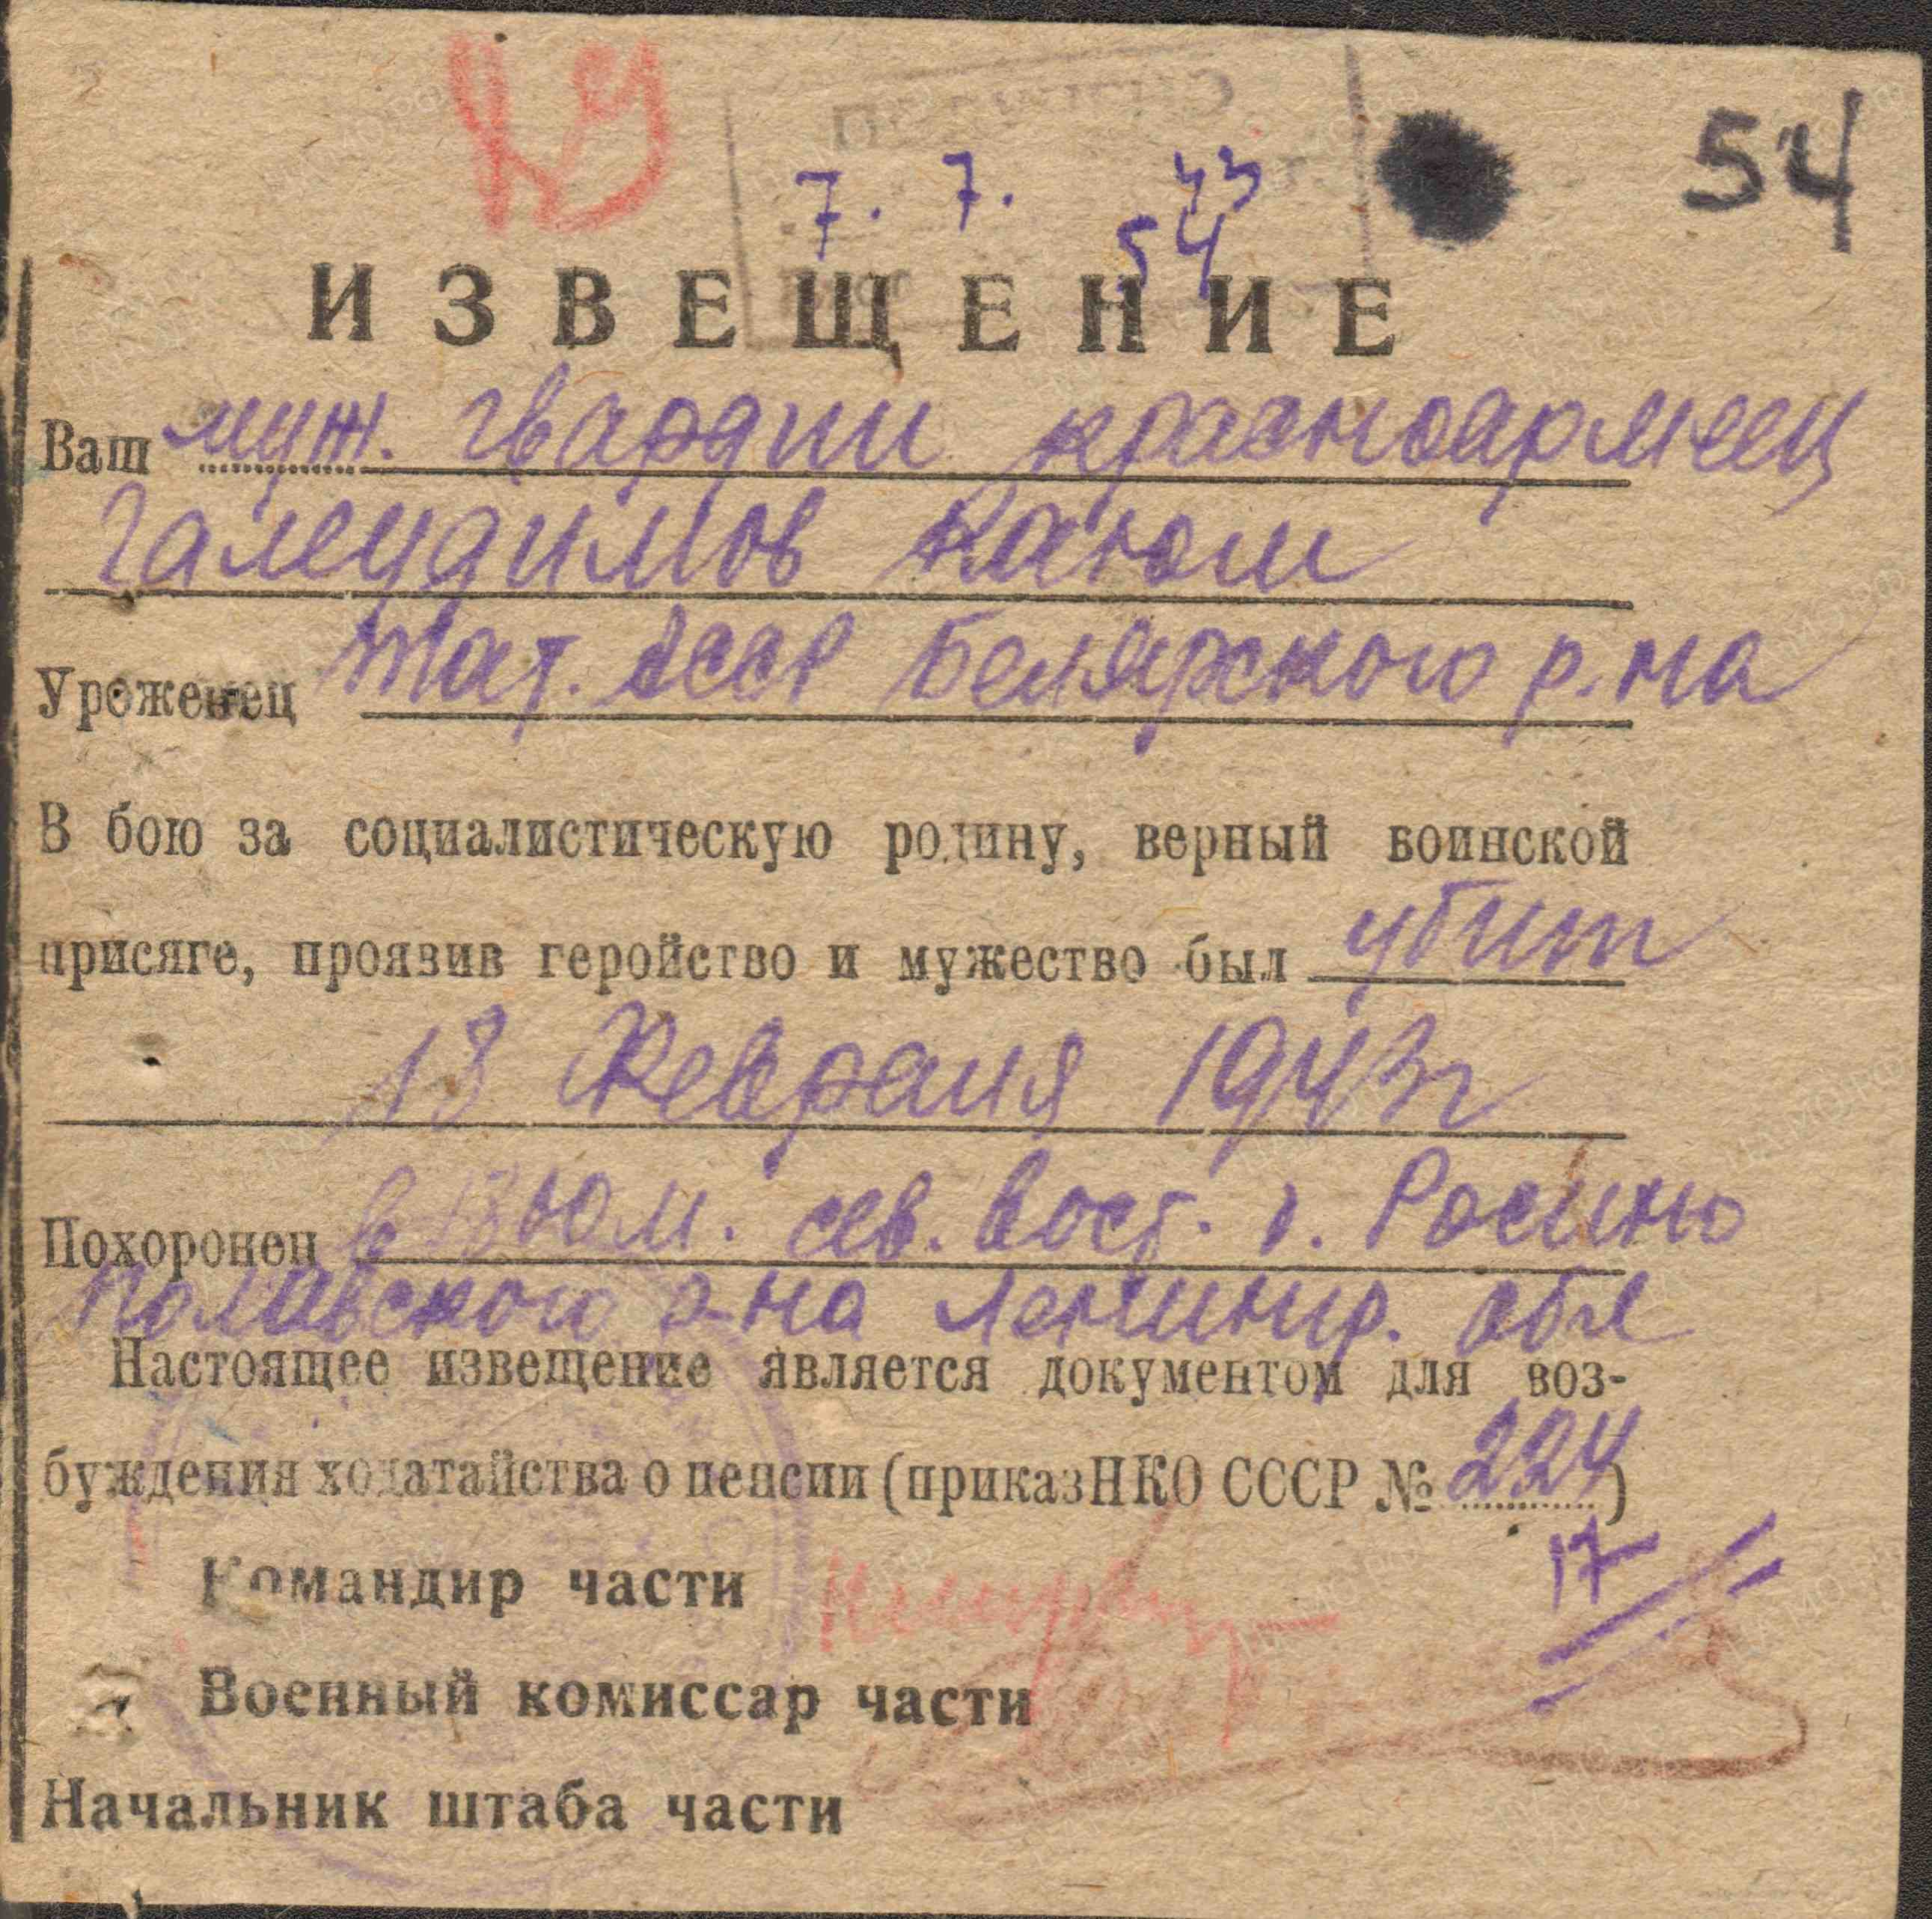 54
7. 7. 43
54
ИЗВЕЩЕНИЕ
Ваш муж. гвардии красноармеец
Галеудимов Каюм
Уроженец Тат. АССР Белярского р-на
В бою за социалистическую родину, верный воинской
присяге, проявив геройство и мужество был убит
18 февраля 1943г
Похоронен в юм. сев. вост. Росино
Полавского р-на Ленингр. обл
Настоящее извещение является документом для воз-
буждения ходатайства о пенсии (приказ НКО СССР № 224)
17
Командир части
Военный комиссар части
Начальник штаба части